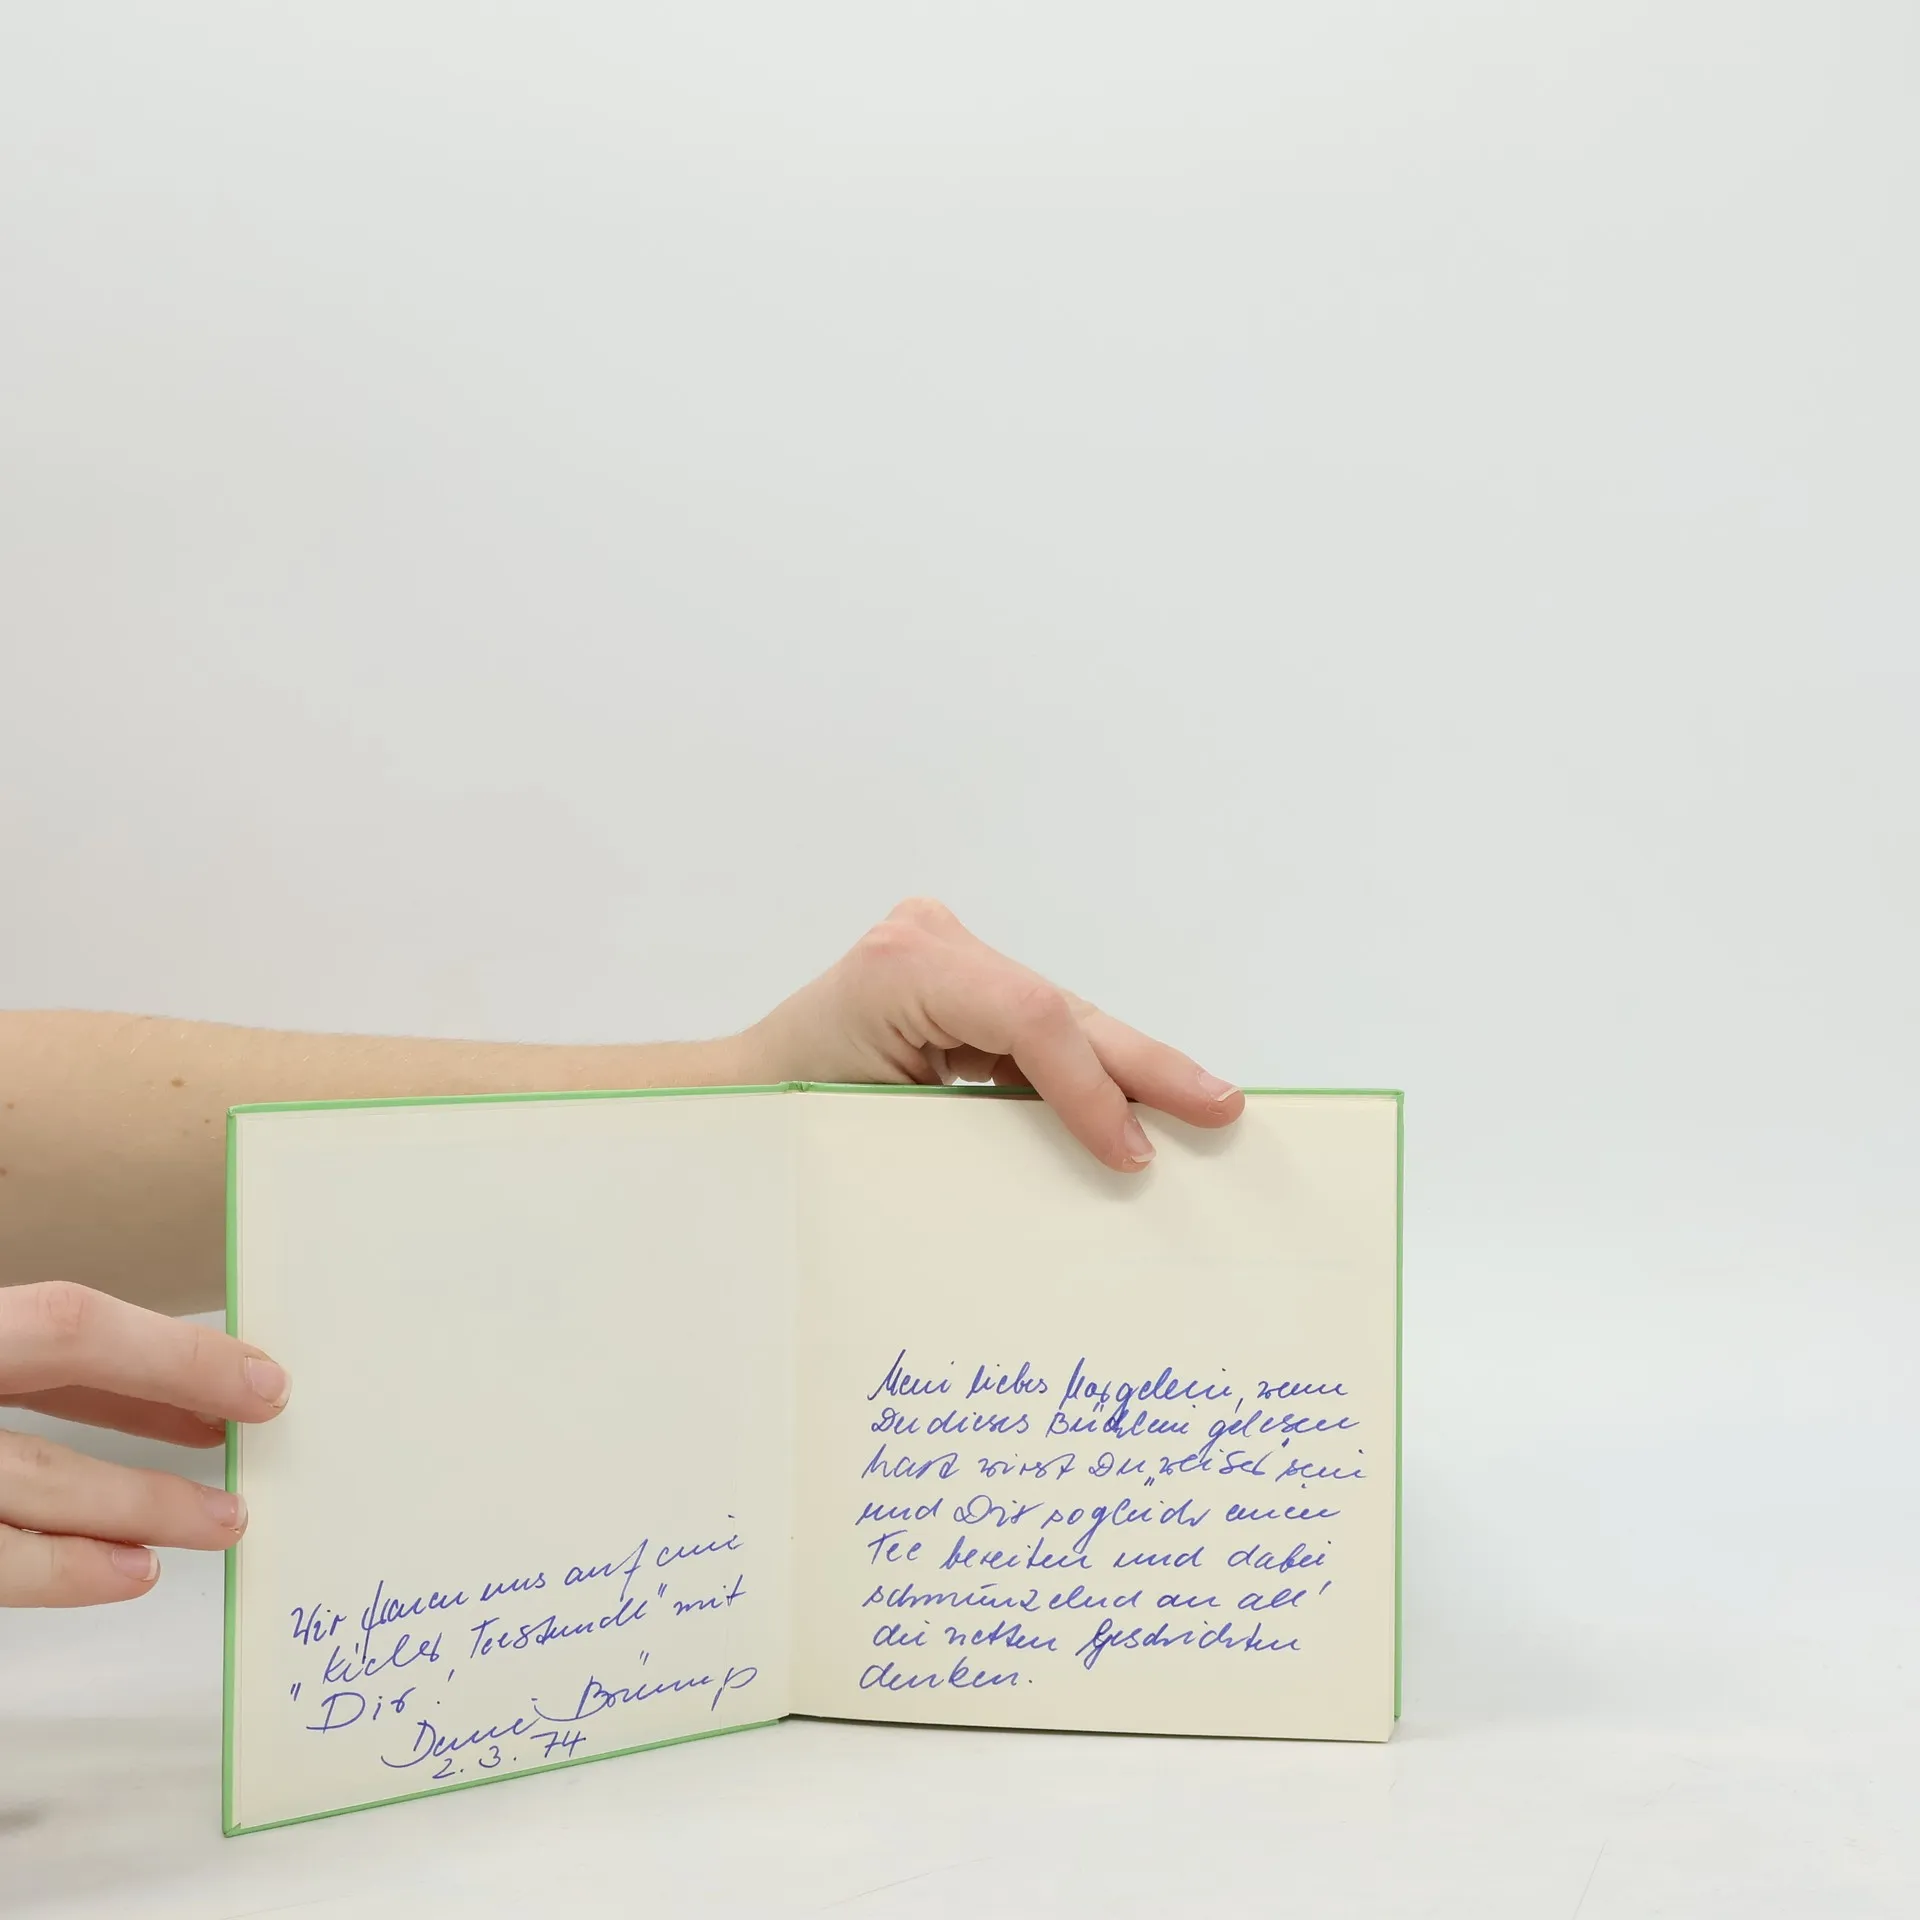 Wir freuen uns auf eine
"kicler Teestunde" mit
Dir!
Deine
2.3.74
Mein liebes Margelein, wenn
Du dieses Büchlein gelesen
hast wirst Du "weiser" sein
und Dir sogleich einen
Tee bereiten und dabei
schmunzelnd an all'
die netten Geschichten
denken.